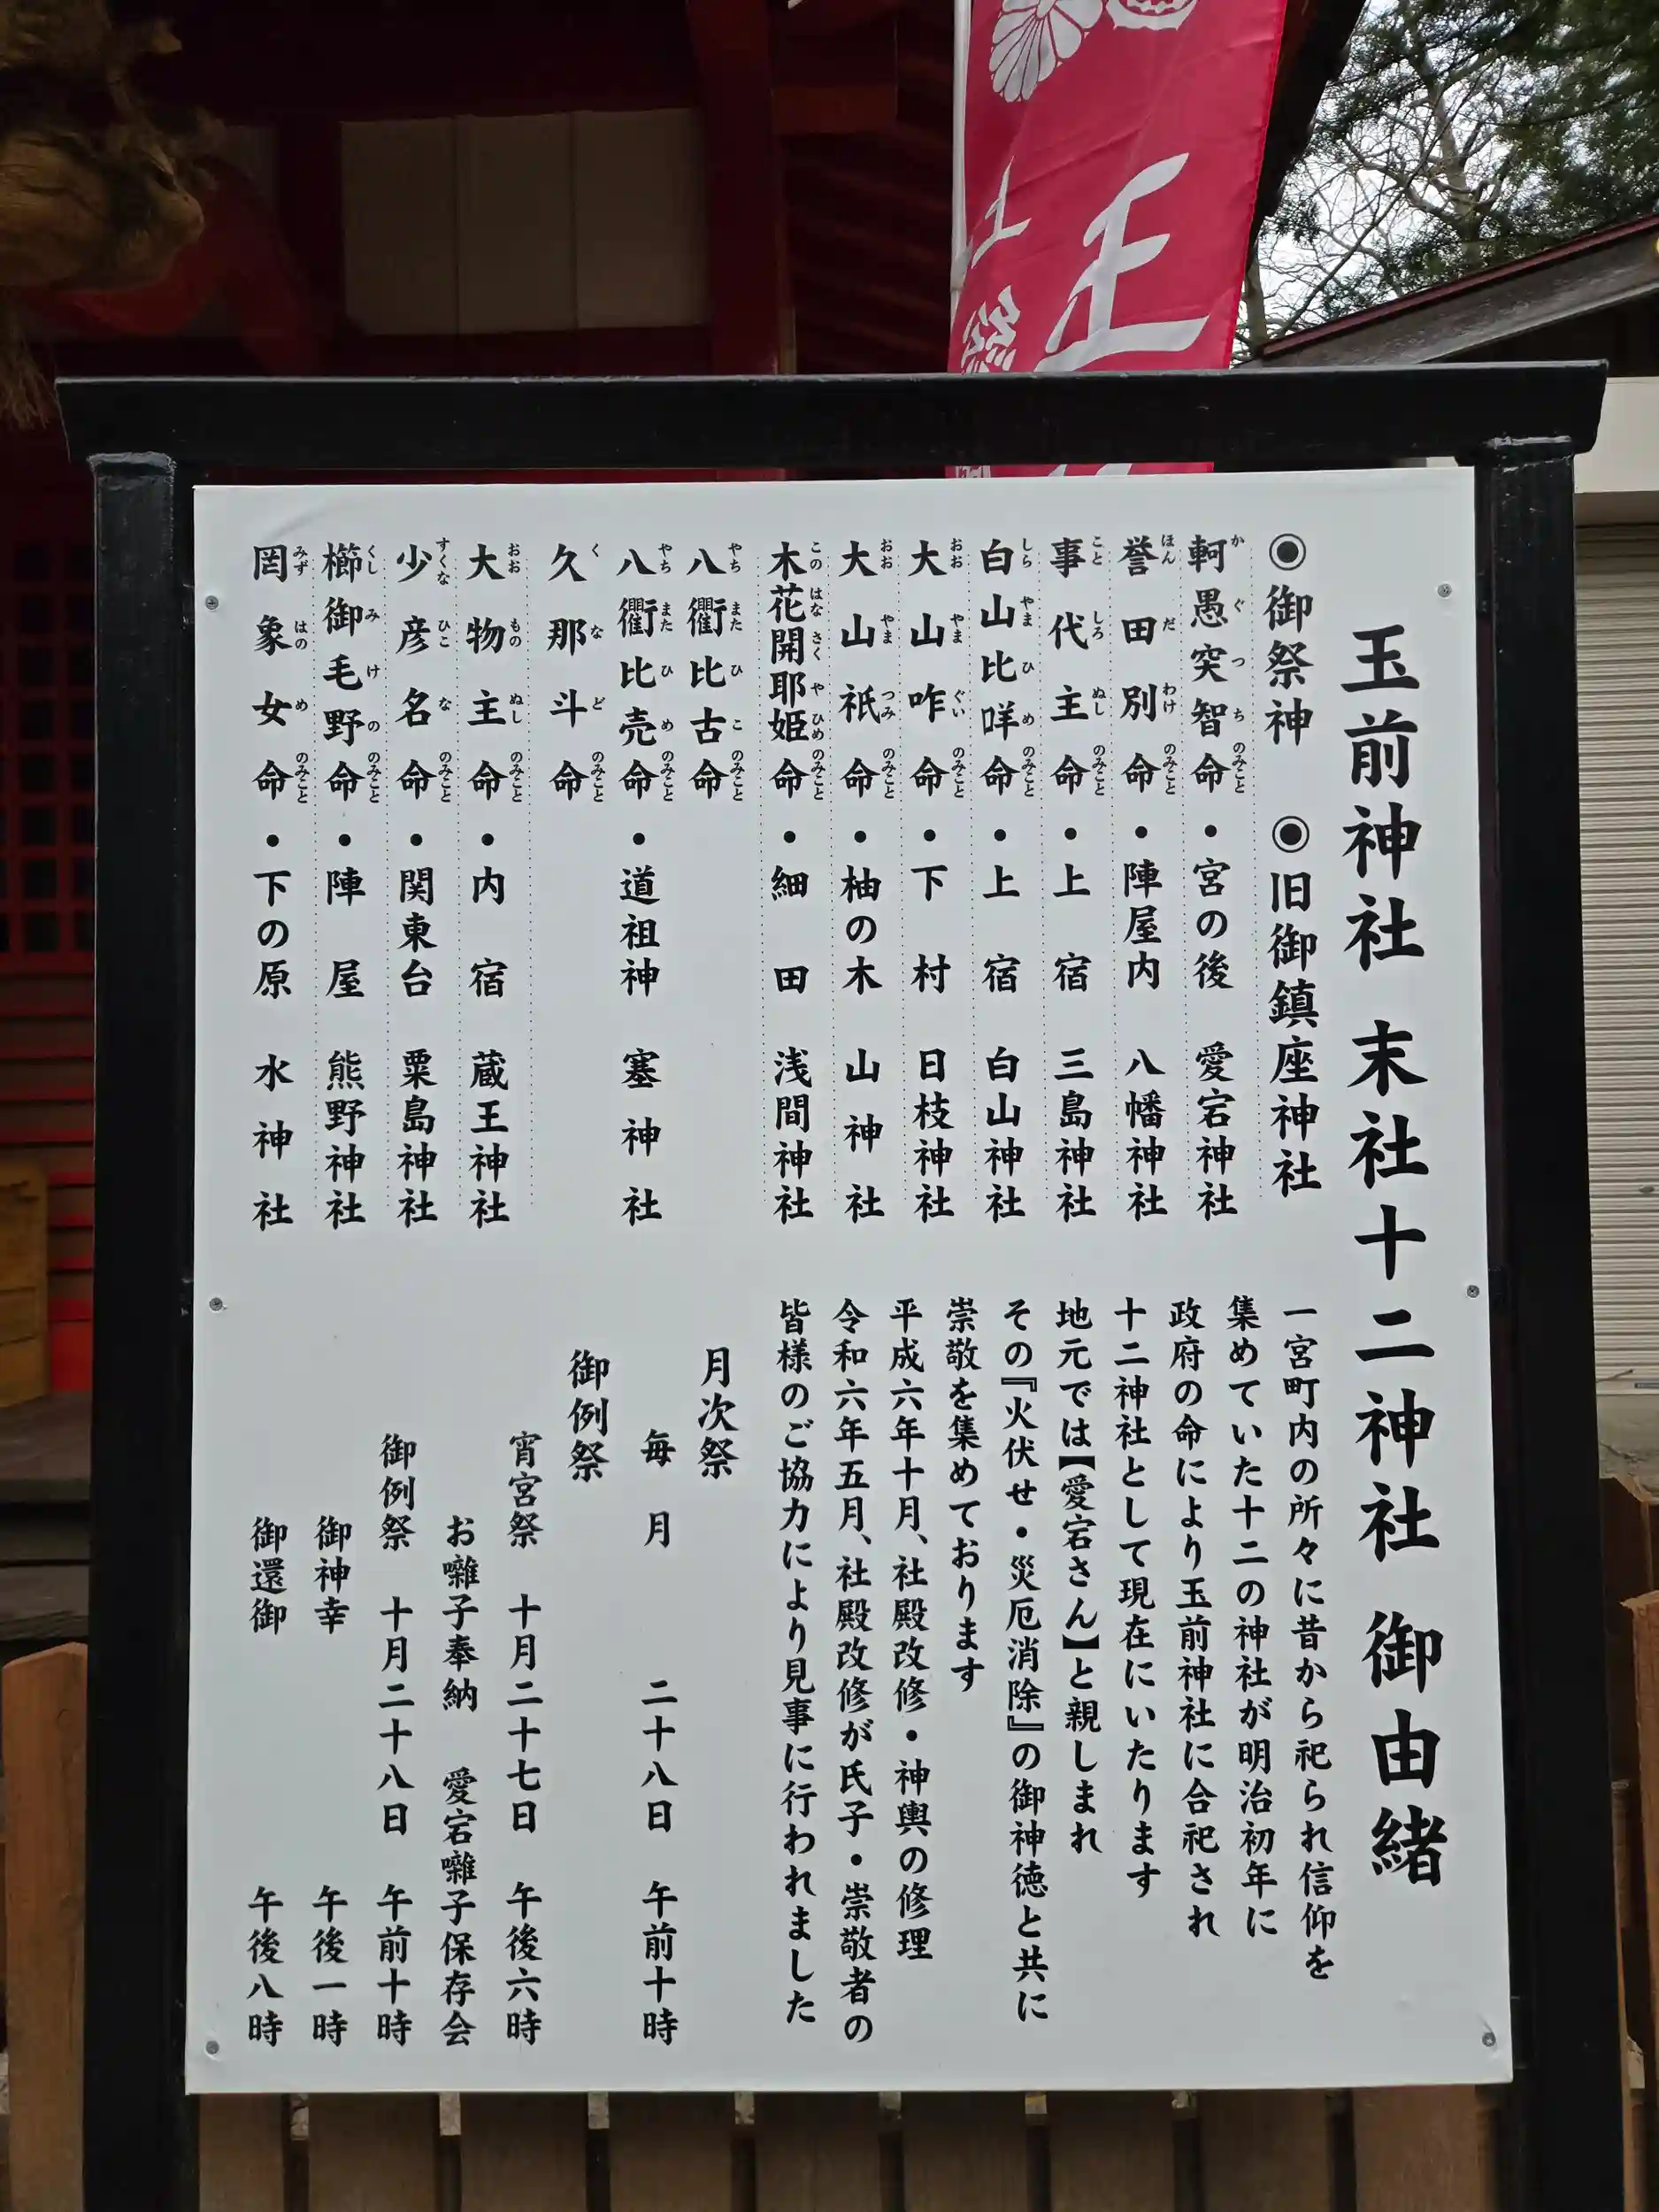 玉前神社 末社十二神社 御由緒
◉御祭神 ◉旧御鎮座神社
軻愚突智命・宮の後 愛宕神社
誉田別命・陣屋内 八幡神社
事代主命・上宿 三島神社
白山比咩命・上宿 白山神社
大山咋命・下村 日枝神社
大山祇命・柚の木 山神社
木花開耶姫命・細田 浅間神社
八衢比古命
八衢比売命・道祖神 塞神社
久那斗命
大物主命・内宿 蔵王神社
少彦名命・関東台 粟島神社
櫛御毛野命・陣屋 熊野神社
罔象女命・下の原 水神社
一宮町内の所々に昔から祀られ信仰を
集めていた十二の神社が明治初年に
政府の命により玉前神社に合祀され
十二神社として現在にいたります
地元では【愛宕さん】と親しまれ
その『火伏せ・災厄消除』の御神徳と共に
崇敬を集めております
平成六年十月、社殿改修・神輿の修理
令和六年五月、社殿改修が氏子・崇敬者の
皆様のご協力により見事に行われました
月次祭
毎月 二十八日 午前十時
御例祭
宵宮祭 十月二十七日 午後六時
お囃子奉納 愛宕囃子保存会
御例祭 十月二十八日 午前十時
御神幸 午後一時
御還御 午後八時